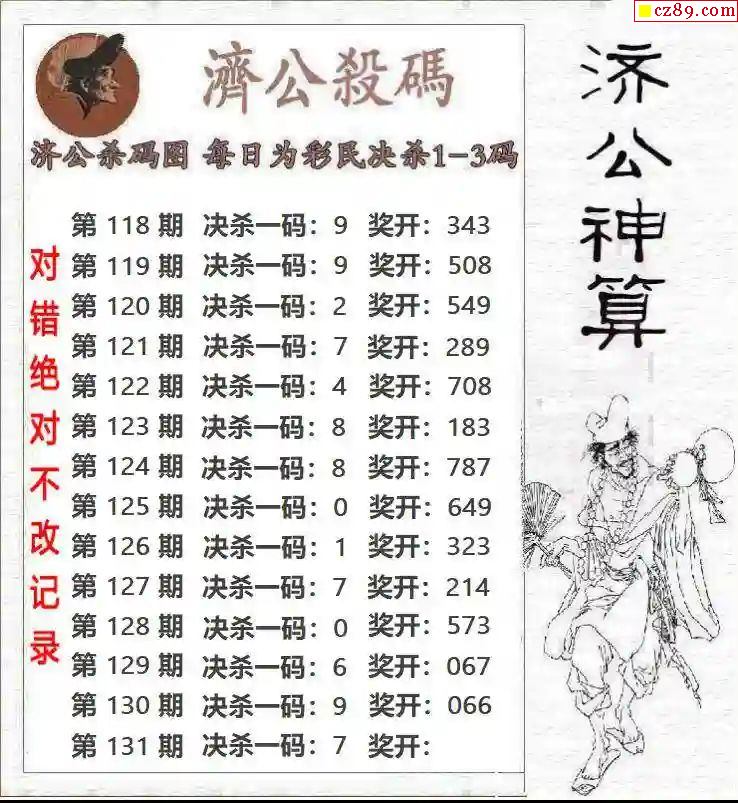 cz89.com
濟公殺碼
济公杀码图 每日为彩民决杀1-3码
第 118 期 决杀一码：9 奖开：343
第 119 期 决杀一码：9 奖开：508
第 120 期 决杀一码：2 奖开：549
第 121 期 决杀一码：7 奖开：289
第 122 期 决杀一码：4 奖开：708
第 123 期 决杀一码：8 奖开：183
第 124 期 决杀一码：8 奖开：787
第 125 期 决杀一码：0 奖开：649
第 126 期 决杀一码：1 奖开：323
第 127 期 决杀一码：7 奖开：214
第 128 期 决杀一码：0 奖开：573
第 129 期 决杀一码：6 奖开：067
第 130 期 决杀一码：9 奖开：066
第 131 期 决杀一码：7 奖开：
对错绝对不改记录
济公神算